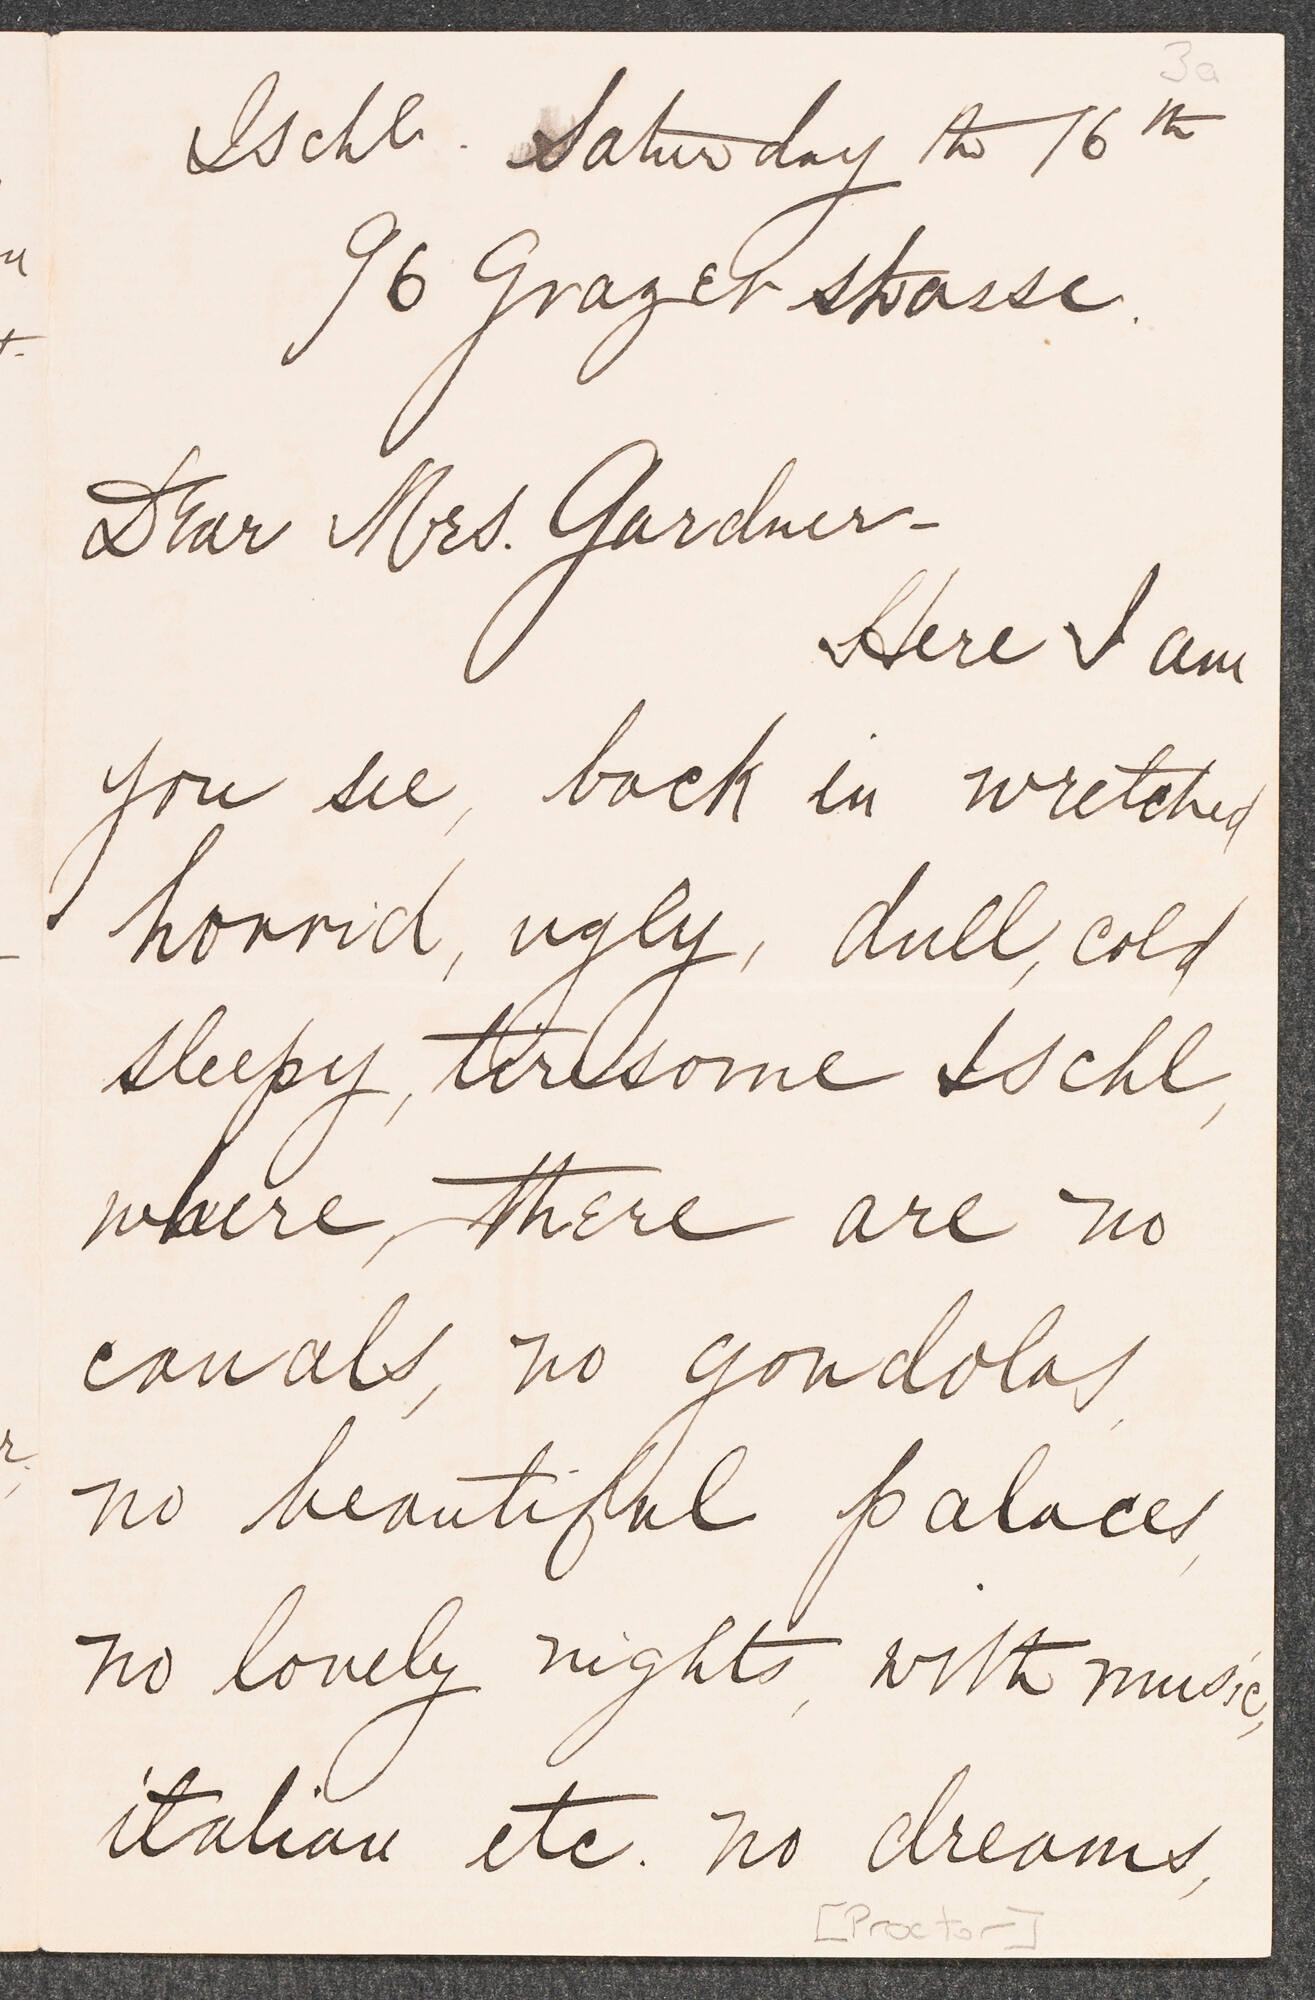 3a
Ischl. Saturday the 16th
96 Grazer strasse.
Dear Mrs. Gardner-
Here I am
you see, back in wretched
horrid, ugly, dull, cold
sleepy, tiresome Ischl,
where, there are no
canals, no gondolas,
no beautiful palaces,
no lovely nights, with music,
italian etc. no dreams,
[Proctor]